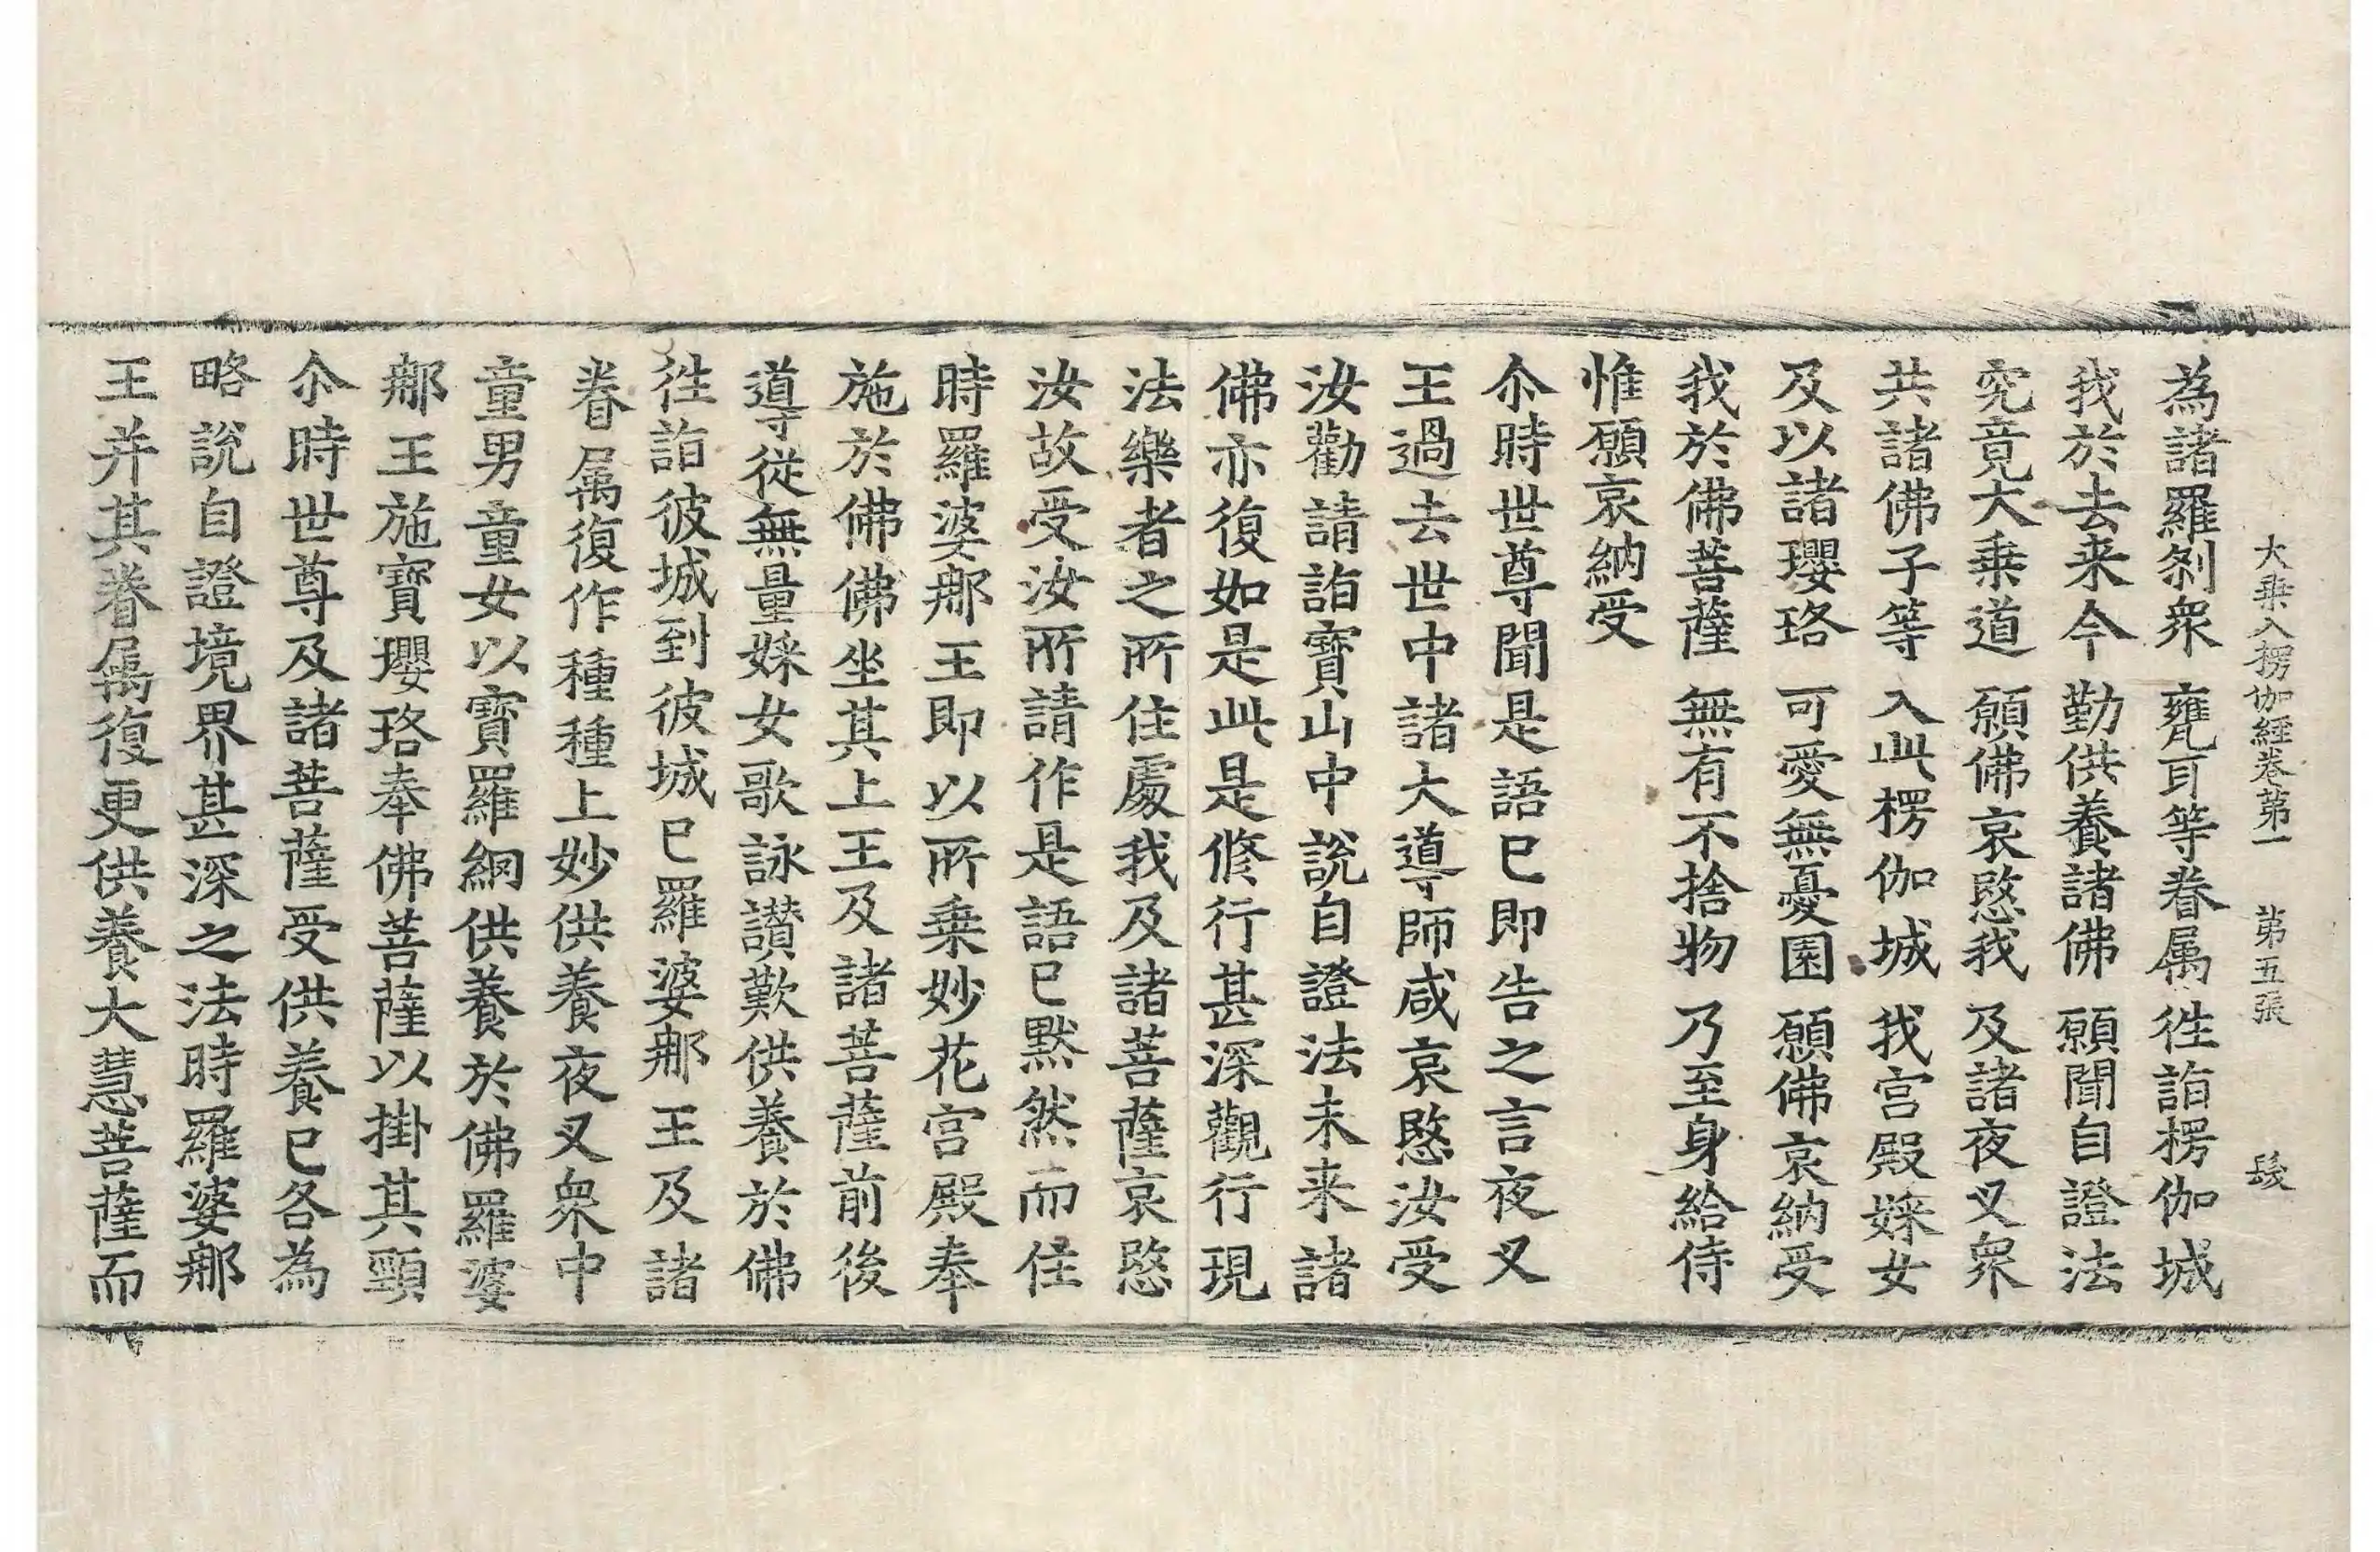 大乗入楞伽經卷第一 第五張 髮
為諸羅剎衆 甕耳等眷属 徃詣楞伽城
我於去来今 勤供養諸佛 願聞自證法
究竟大乗道 願佛哀愍我 及諸夜叉衆
共諸佛子等 入此楞伽城 我宮殿婇女
及以諸瓔珞 可愛無憂園 願佛哀納受
我於佛菩薩 無有不捨物 乃至身給侍
惟願哀納受
尒時世尊聞是語已即告之言夜叉
王過去世中諸大導師咸哀愍汝受
汝勸請詣寶山中說自證法未来諸
佛亦復如是此是修行甚深觀行現
法樂者之所住處我及諸菩薩哀愍
汝故受汝所請作是語已默然而住
時羅婆那王即以所乗妙花宮殿奉
施於佛佛坐其上王及諸菩薩前後
導從無量婇女歌詠讃歎供養於佛
徃詣彼城到彼城已羅婆那王及諸
眷属復作種種上妙供養夜叉衆中
童男童女以寶羅網供養於佛羅婆
那王施寶瓔珞奉佛菩薩以掛其頸
尒時世尊及諸菩薩受供養已各為
略說自證境界甚深之法時羅婆那
王并其眷属復更供養大慧菩薩而